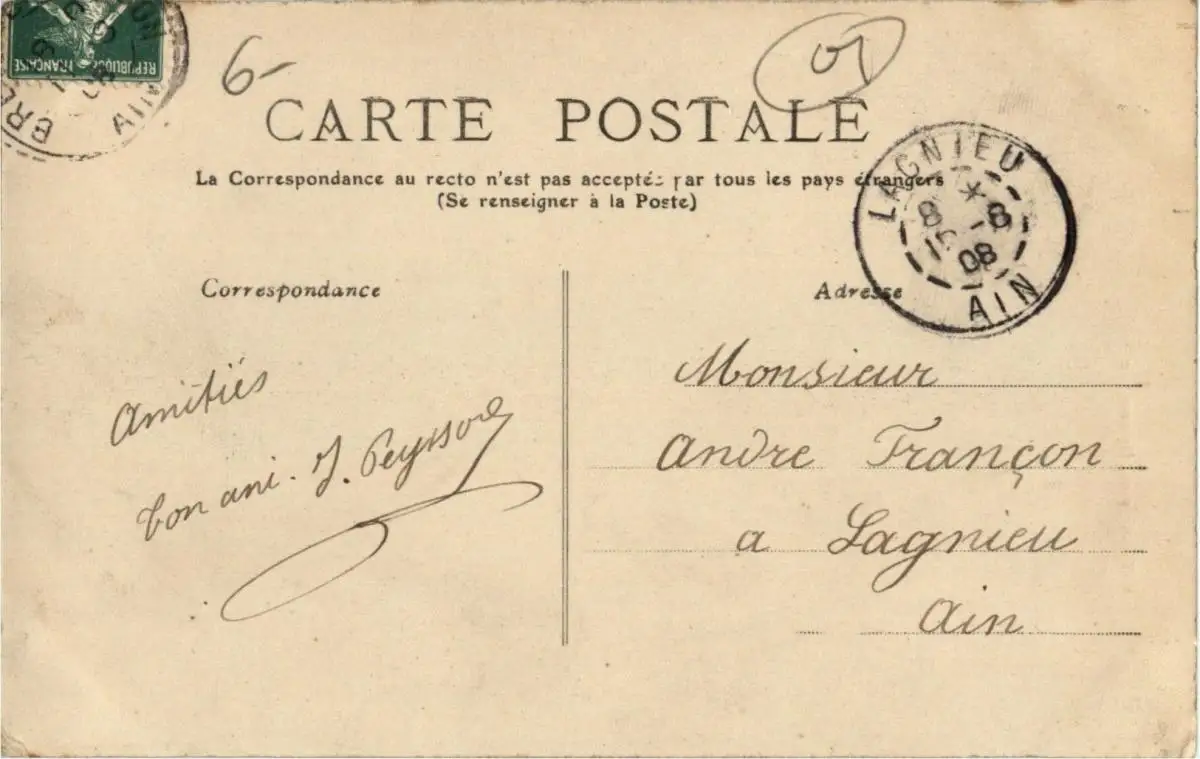 REPUBLIQUE FRANÇAISE
AIN
6-
01
CARTE POSTALE
La Correspondance au recto n'est pas acceptée par tous les pays étrangers
(Se renseigner à la Poste)
LAGNIEU
8 -8
08
AIN
Correspondance
Adresse
Amitiés
ton ami. J.
Monsieur
Andre Françon
a Lagnieu
Ain